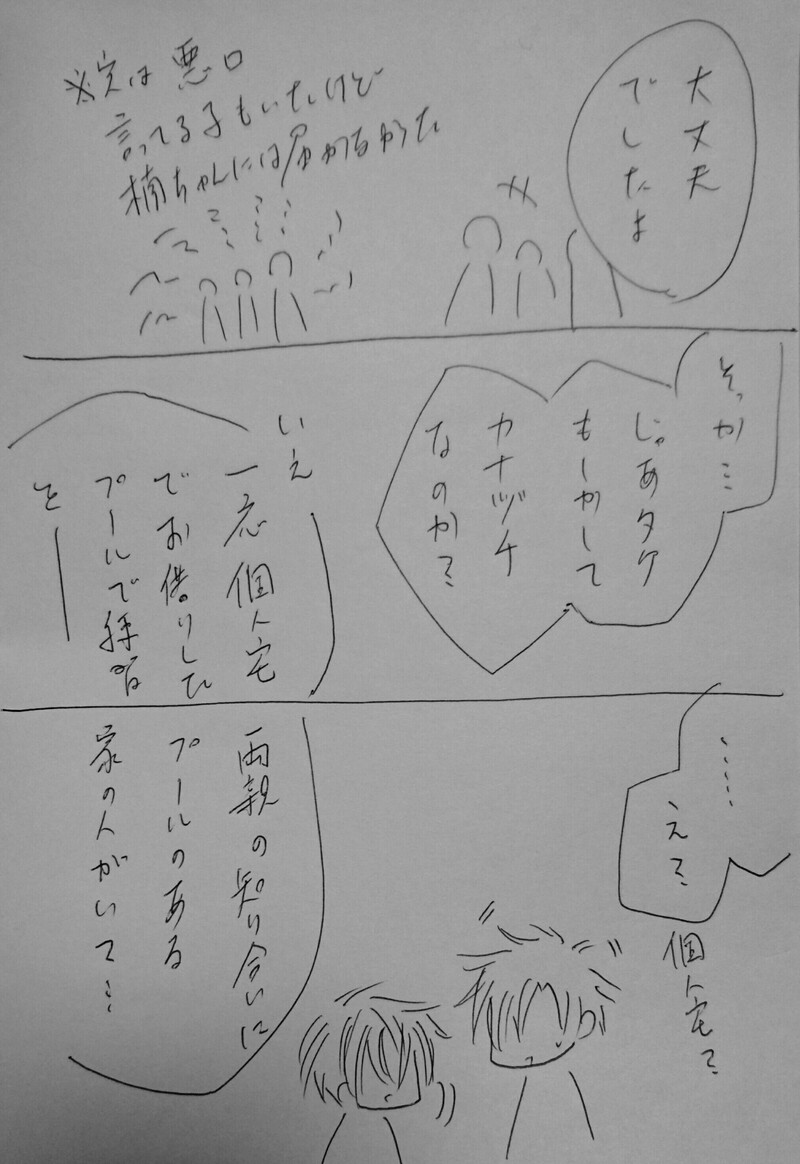 大丈夫
でしたよ
※実は悪口
言ってる子もいたけど
楠ちゃんには届かなかった
そっか…
じゃあタケ
もしかして
カナヅチ
なのか?
いえ
一応個人宅
でお借りした
プールで練習
を
……
え?
個人宅?
両親の知り合いに
プールのある
家の人がいて…